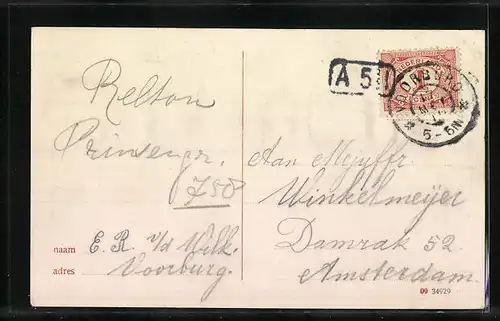 A 5
NEDERLAND
VOORBURG
5-6N
Relton
Prinsengr.
750
Aan Mejuffr
Winkelmeijer
Damrak 52
Amsterdam.
naam E. R. v/d Wilk.
adres Voorburg.
09 34929